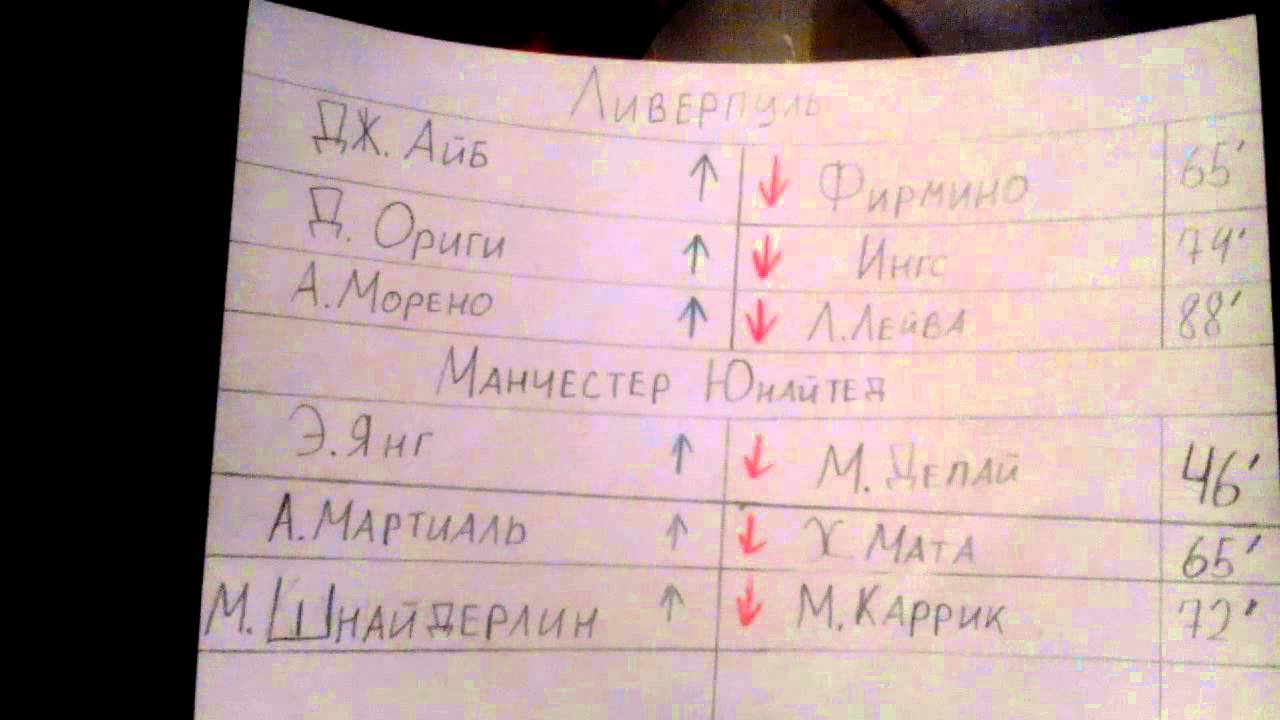 Ливерпуль
Дж. Айб ↑ ↓ Фирмино 65'
Д. Ориги ↑ ↓ Ингс 74'
А. Морено ↑ ↓ Л. Лейва 88'
Манчестер Юнайтед
Э. Янг ↑ ↓ М. Депай 46'
А. Мартиаль ↑ ↓ Х Мата 65'
М. Шнайдерлин ↑ ↓ М. Каррик 72'